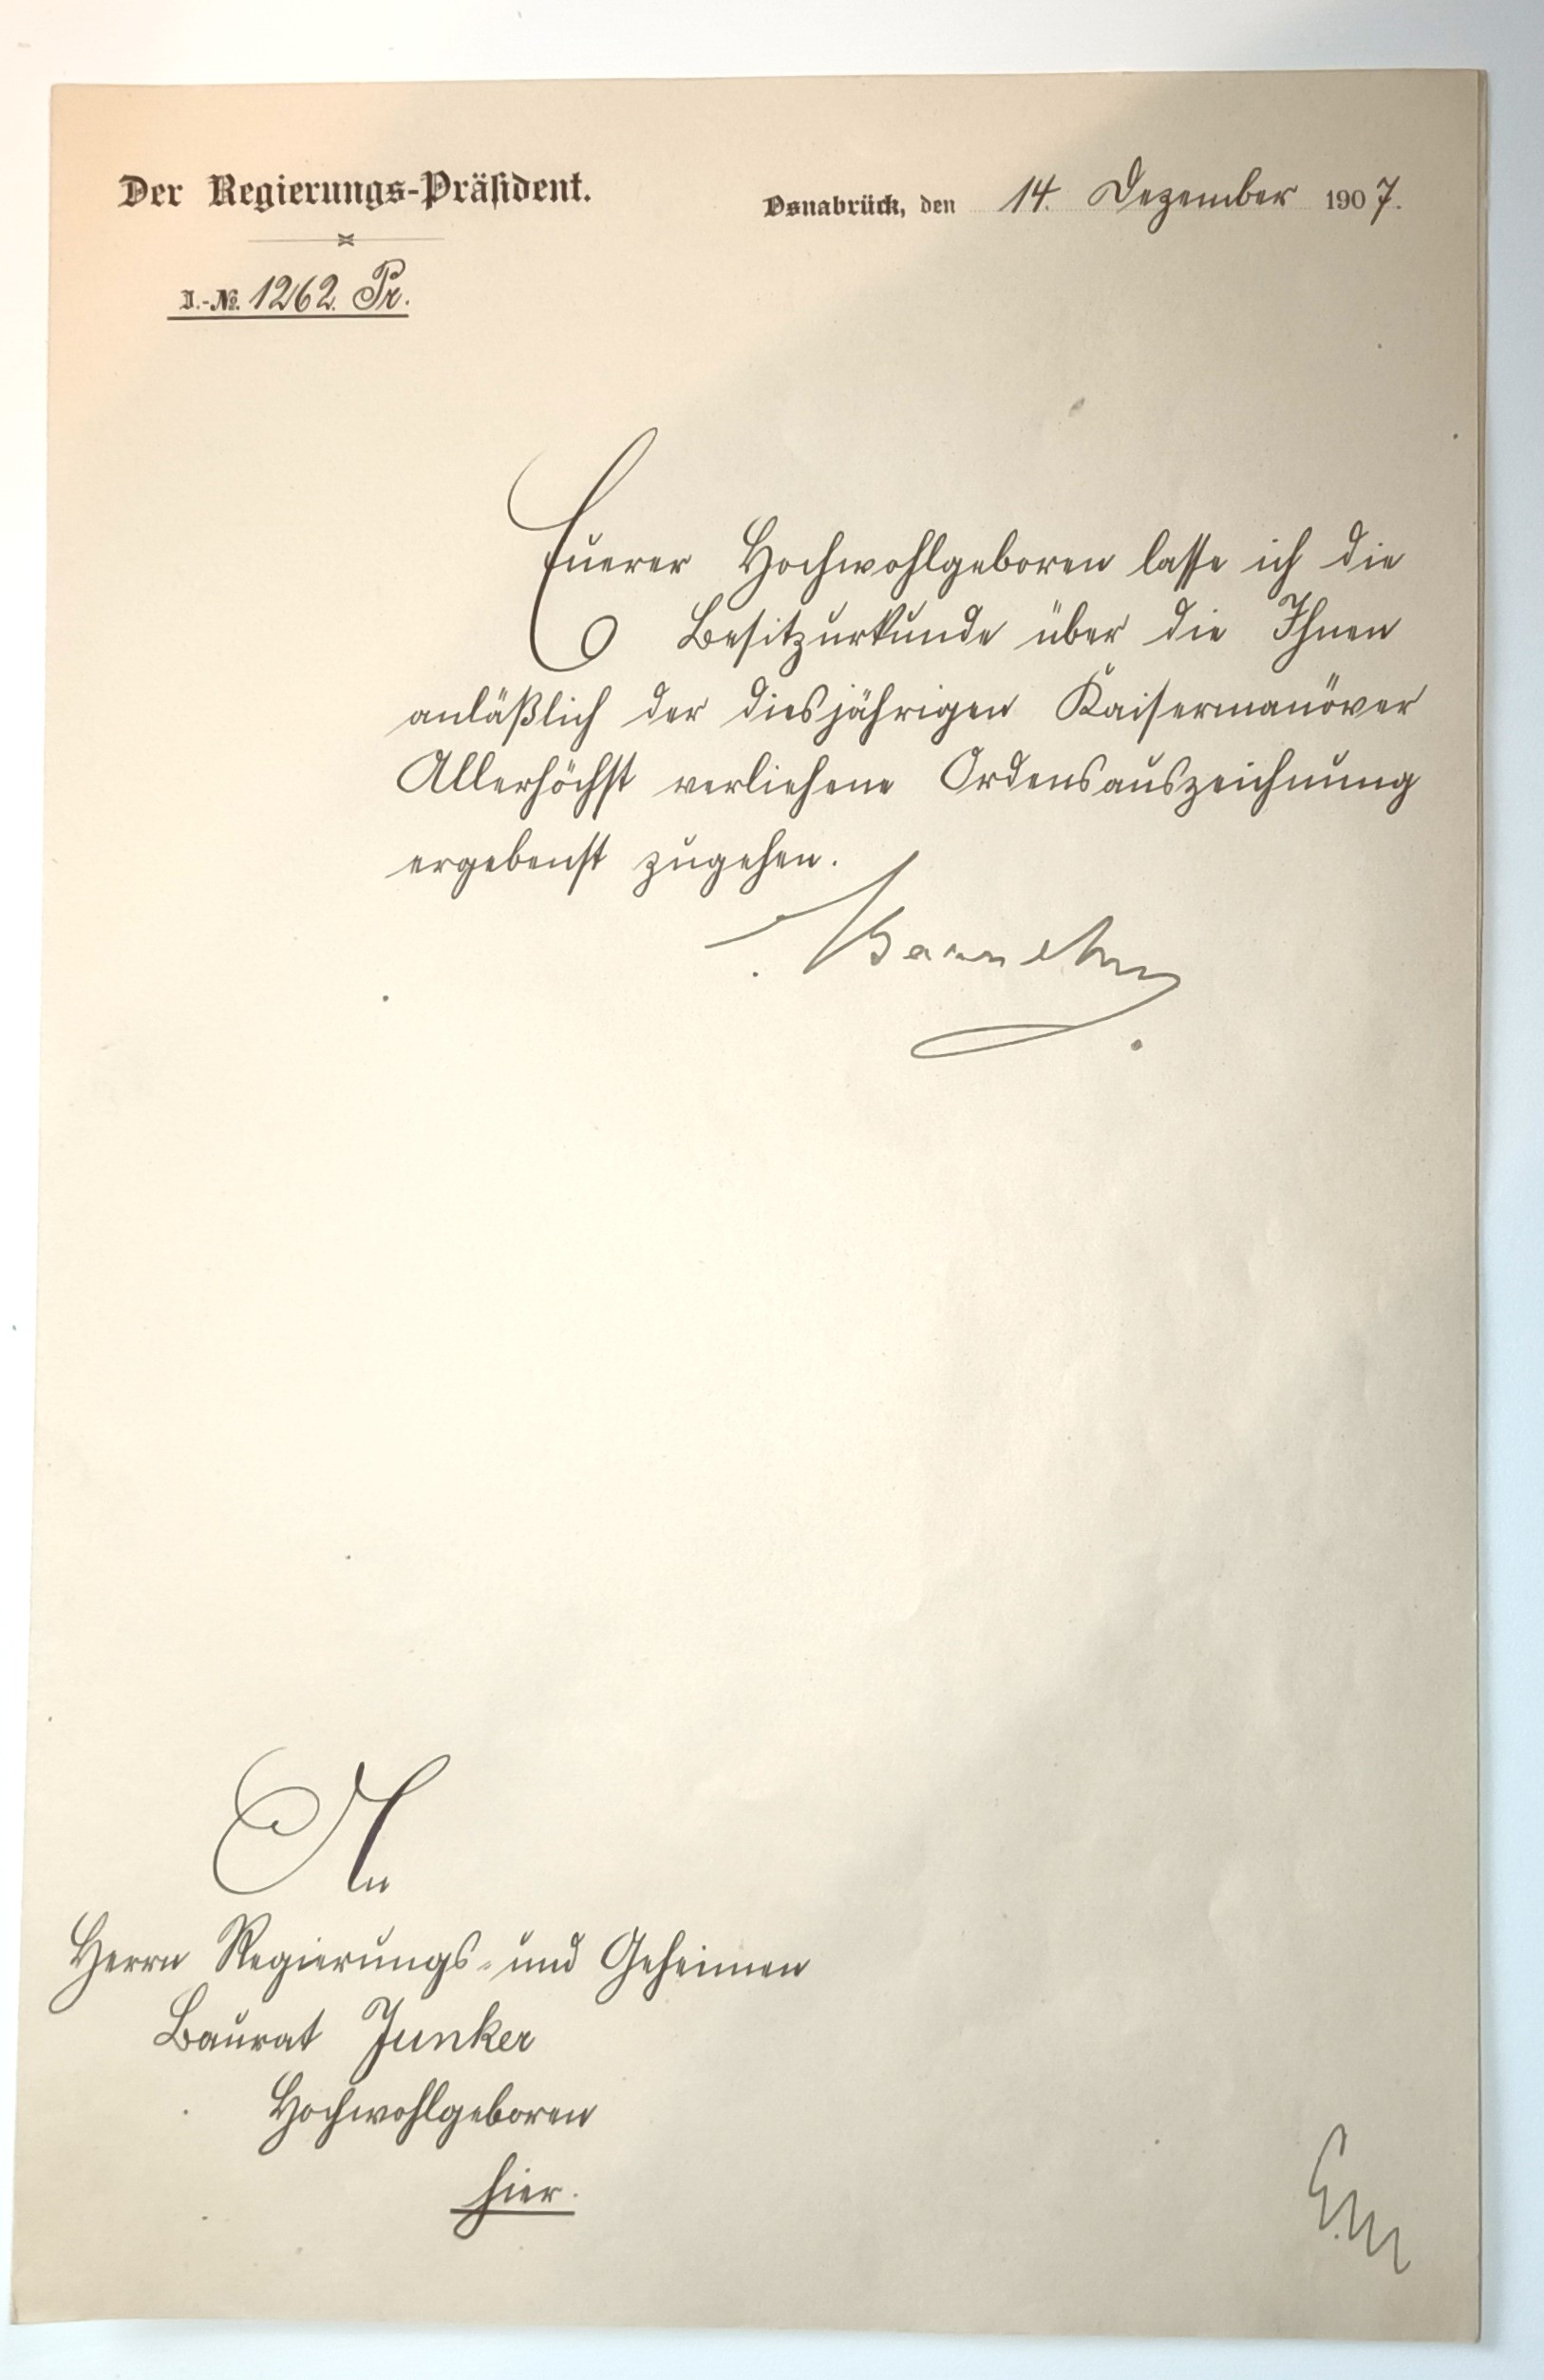 Der Regierungs-Präsident.
Osnabrück, den 14. Dezember 1907.
J.-No. 1262. Pr.
Euerer Hochwohlgeboren lasse ich die
Besitzurkunde über die Ihnen
anläßlich der diesjährigen Kaisermanöver
Allerhöchst verliehene Ordensauszeichnung
ergebenst zugehen.
An
Herrn Regierungs- und Geheimen
Baurat Junker
Hochwohlgeboren
hier.